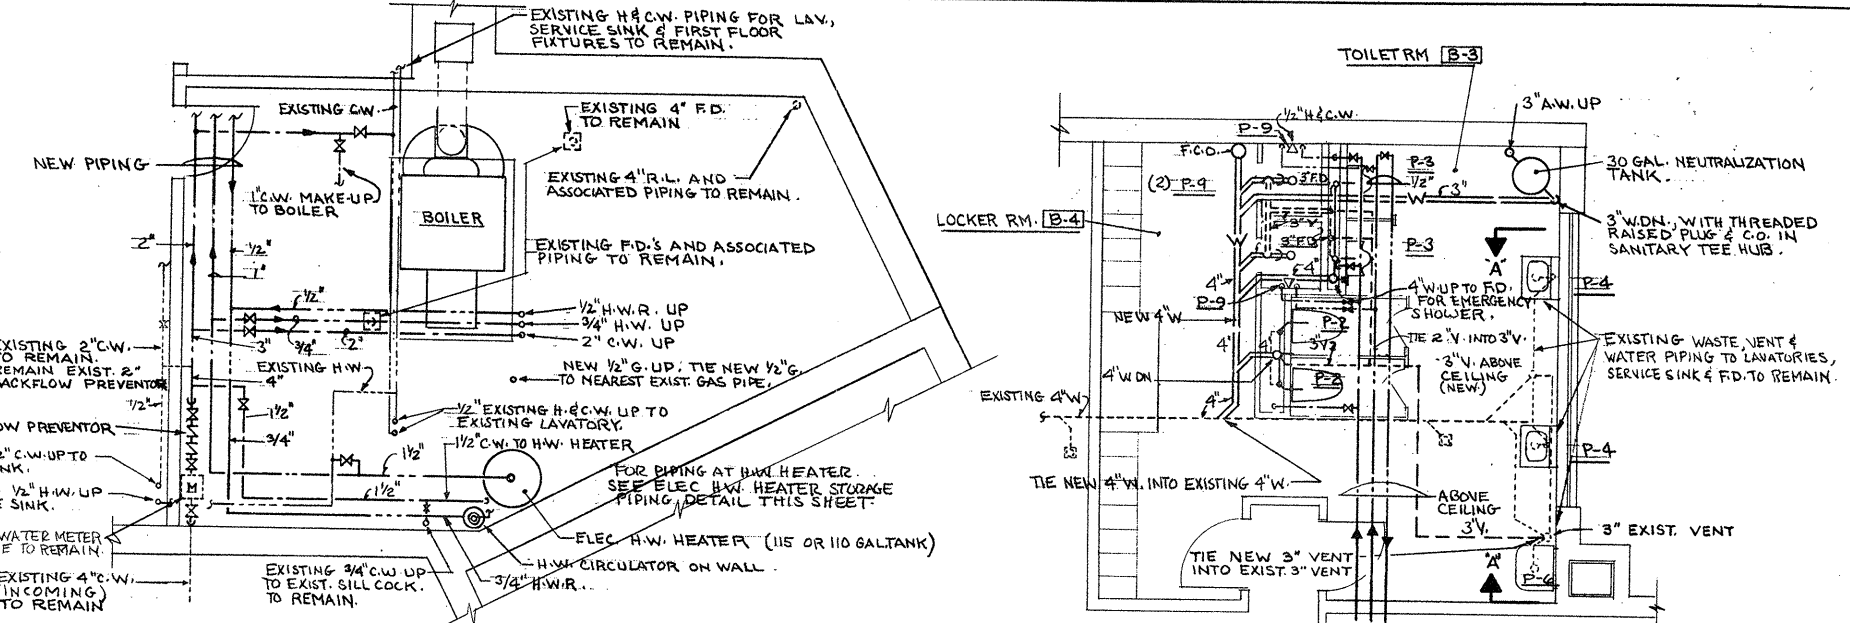 EXISTING H & C.W. PIPING FOR LAV.,
SERVICE SINK & FIRST FLOOR
FIXTURES TO REMAIN.
EXISTING C.W.
EXISTING 4" F.D.
TO REMAIN
NEW PIPING
1" C.W. MAKE-UP
TO BOILER
BOILER
EXISTING 4" R.L. AND
ASSOCIATED PIPING TO REMAIN.
EXISTING F.D.'S AND ASSOCIATED
PIPING TO REMAIN.
2"
1/2"
1"
1/2"
3/4"
2"
3"
1/2" H.W.R. UP
3/4" H.W. UP
2" C.W. UP
EXISTING 2" C.W.
TO REMAIN.
REMAIN EXIST. 2"
BACKFLOW PREVENTOR
EXISTING H.W.
4"
NEW 1/2" G. UP. TIE NEW 1/2" G.
TO NEAREST EXIST. GAS PIPE.
1/2"
1 1/2"
3/4"
1/2" EXISTING H. & C.W. UP TO
EXISTING LAVATORY.
1 1/2" C.W. TO H.W. HEATER
OW PREVENTOR
2" C.W. UP TO
NK.
1/2" H.W. UP
SINK.
M
1 1/2
1 1/2"
FOR PIPING AT H.W. HEATER
SEE ELEC H.W. HEATER STORAGE
PIPING DETAIL THIS SHEET
WATER METER
E TO REMAIN.
ELEC. H.W. HEATER (115 OR 110 GAL TANK)
H.W. CIRCULATOR ON WALL.
3/4" H.W.R.
EXISTING 4" C.W.
(INCOMING)
TO REMAIN
EXISTING 3/4" C.W. UP
TO EXIST. SILL COCK.
TO REMAIN.
TOILET RM B-3
3" A.W. UP
1/2" H & C.W.
P-9
F.C.O.
P-3
1/2"
3"
30 GAL. NEUTRALIZATION
TANK.
(2) P-9
3" F.D
W
LOCKER RM. B-4
3" V.
3" F.D
P-3
W
3" W.DN., WITH THREADED
RAISED PLUG & C.O. IN
SANITARY TEE HUB.
"A"
4"
4"
P-9
P-4
4" W. UP TO F.D.
FOR EMERGENCY
SHOWER.
NEW 4" W
P-2
TIE 2" V. INTO 3" V.
4"
4"
3" V
3" V. ABOVE
CEILING
(NEW)
EXISTING WASTE, VENT &
WATER PIPING TO LAVATORIES,
SERVICE SINK & F.D. TO REMAIN.
4" W DN
P-2
EXISTING 4" W
4"
P-4
TIE NEW 4" W. INTO EXISTING 4" W.
ABOVE
CEILING
3" V.
3" EXIST. VENT
TIE NEW 3" VENT
INTO EXIST. 3" VENT
"A"
P-6